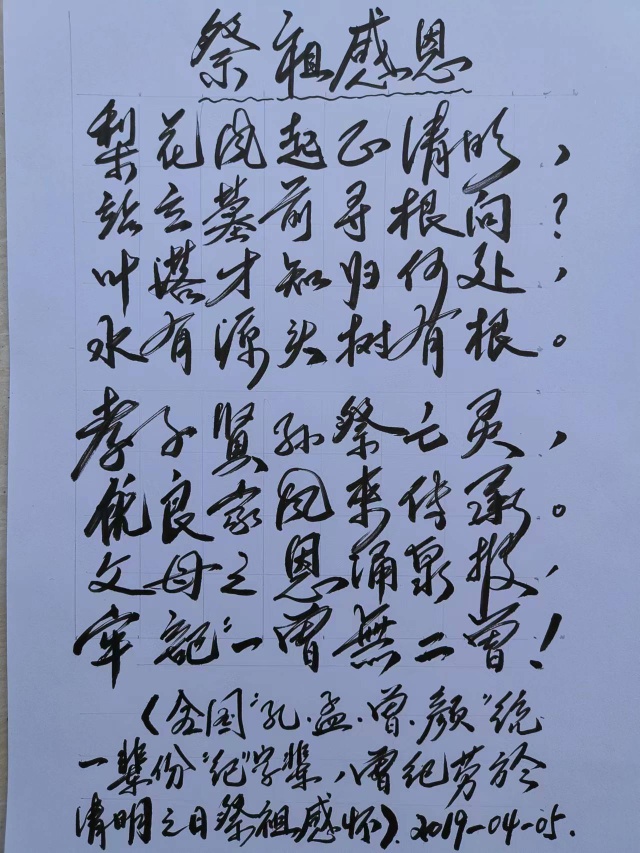 祭祖感恩
梨花风起正清明，
站立墓前寻根向？
叶落才知归何处，
水有源头树有根。
孝子贤孙祭亡灵，
优良家风来传承。
父母之恩涌泉报，
牢记“一曾無二曾！
（全国“孔·孟·曾·颜”统
一辈份“纪”字辈，曾纪劳於
清明之日祭祖感怀）.2019-04-05.